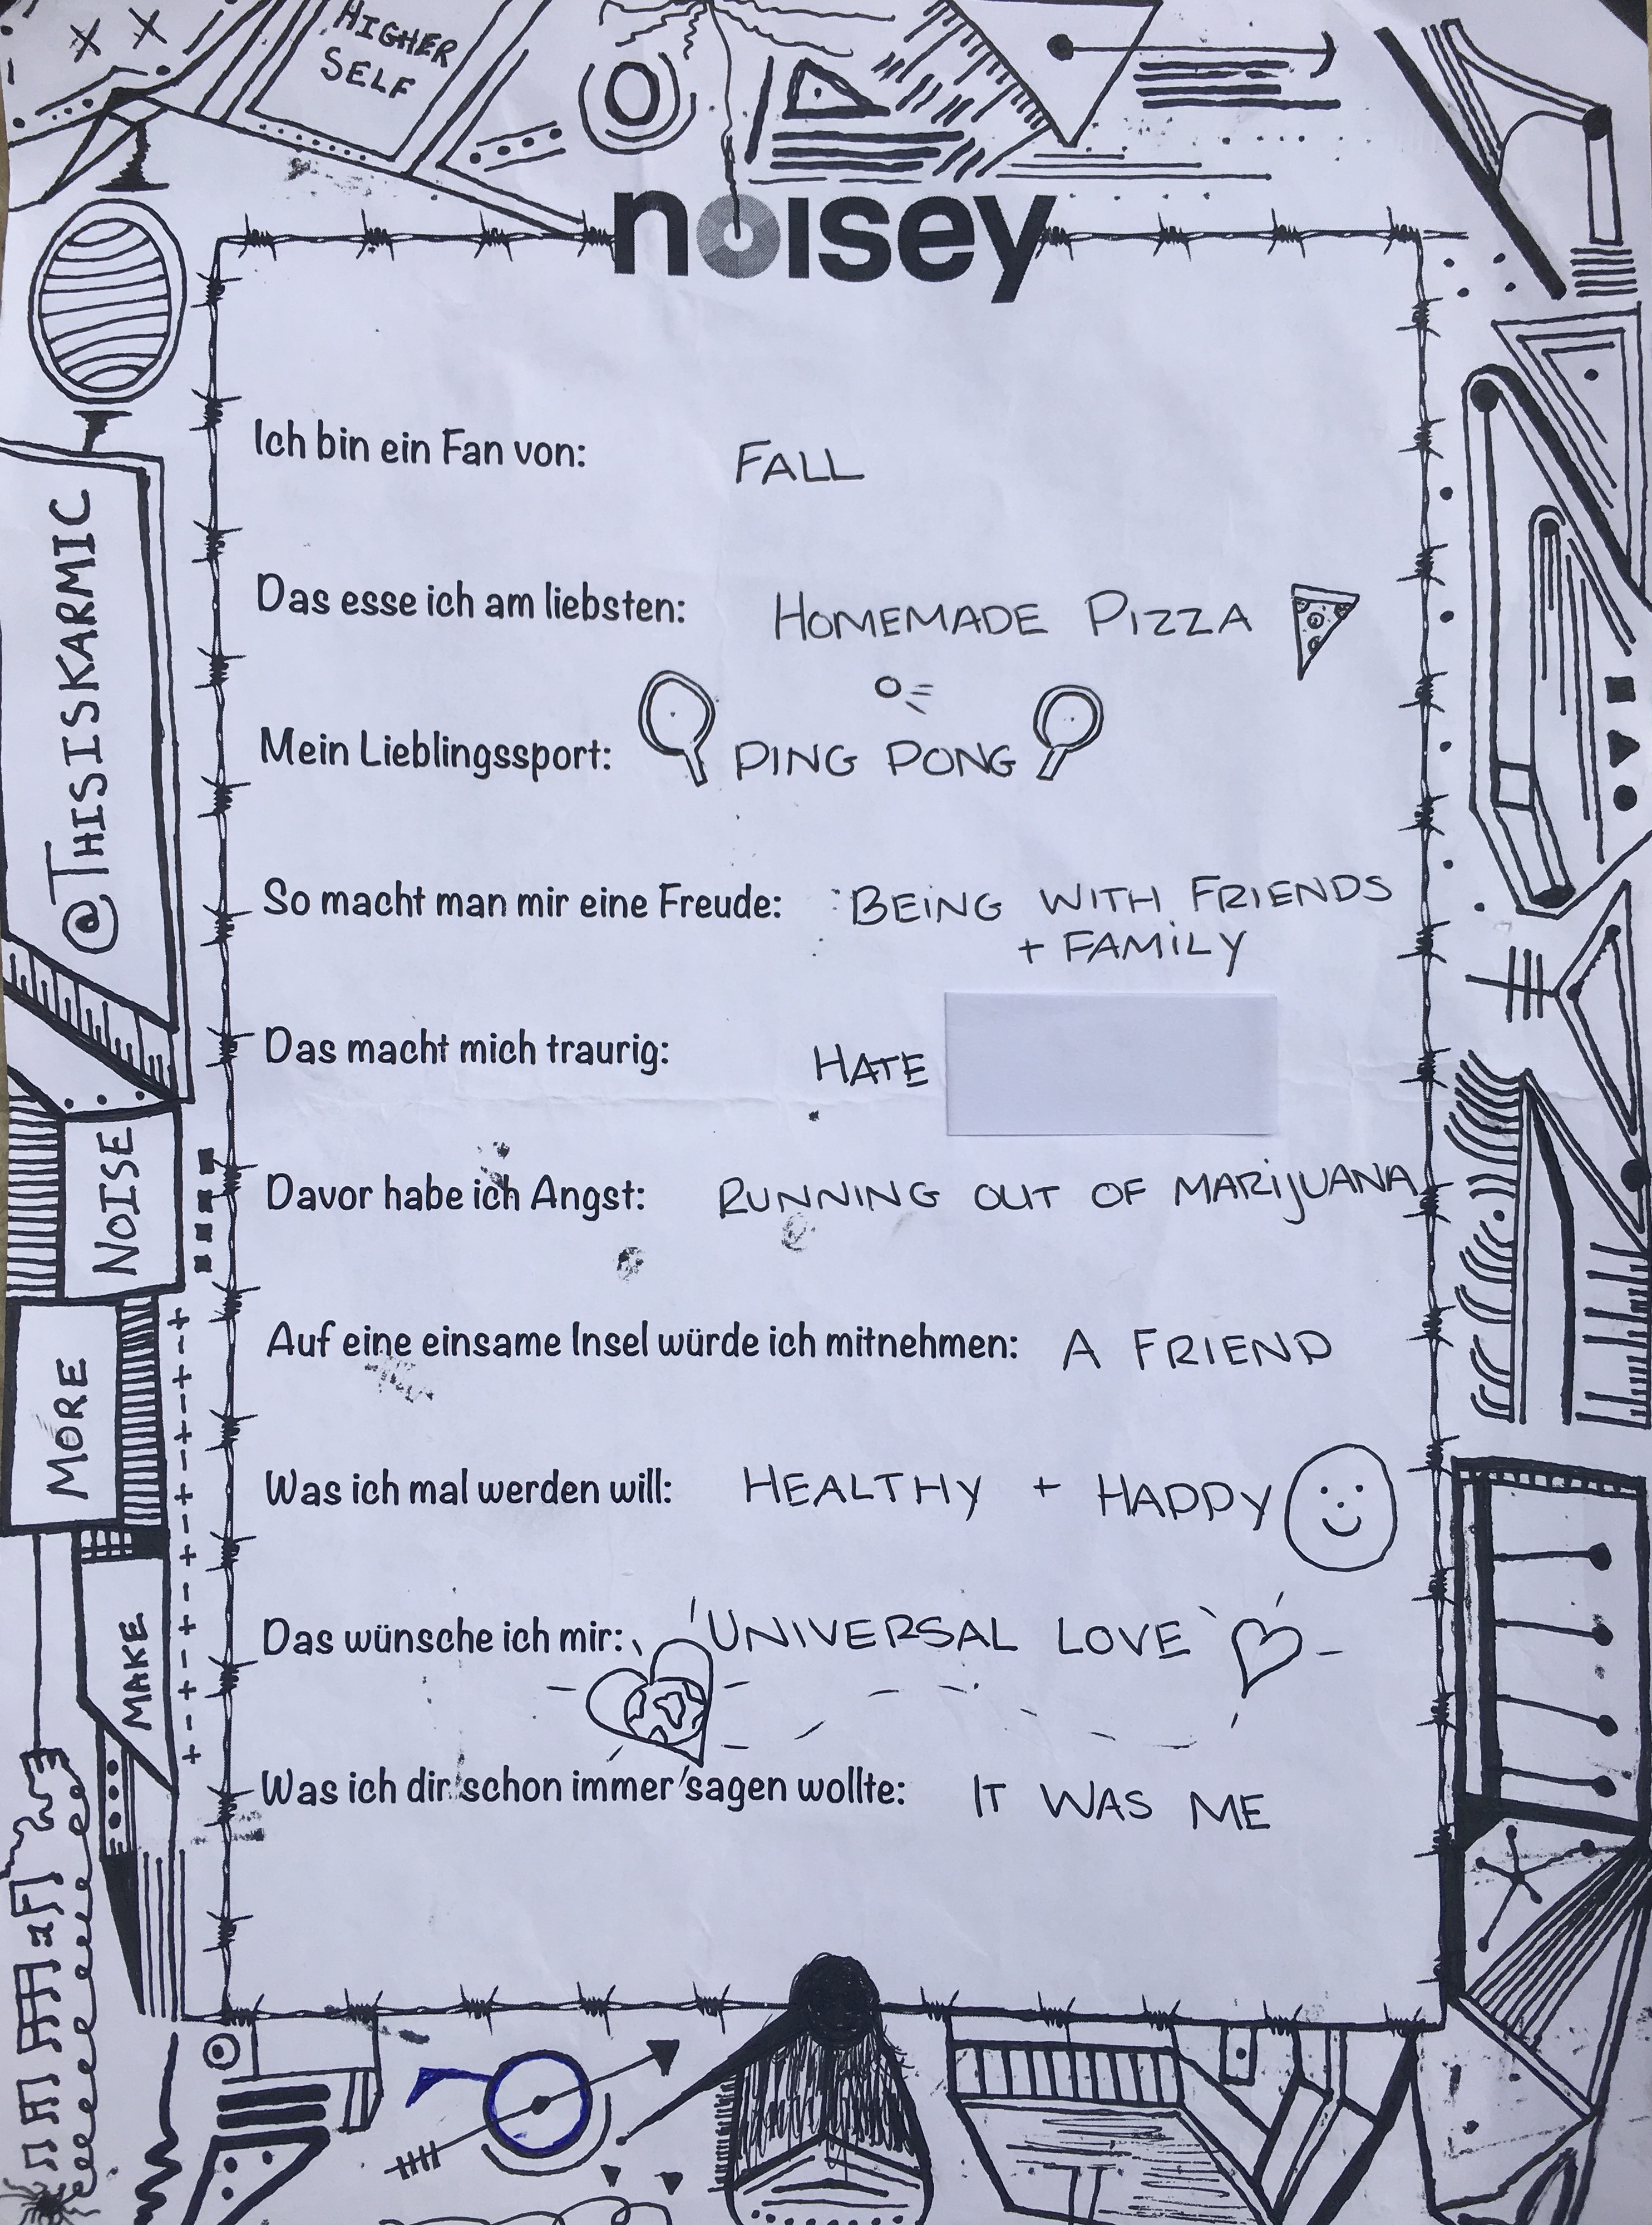 HIGHER
SELF
noisey
Ich bin ein Fan von: FALL
Das esse ich am liebsten: HOMEMADE PIZZA
Mein Lieblingssport: PING PONG
So macht man mir eine Freude: BEING WITH FRIENDS
+ FAMILY
Das macht mich traurig: HATE
Davor habe ich Angst: RUNNING OUT OF MARIJUANA
Auf eine einsame Insel würde ich mitnehmen: A FRIEND
Was ich mal werden will: HEALTHY + HAPPY
Das wünsche ich mir: UNIVERSAL LOVE
Was ich dir schon immer sagen wollte: IT WAS ME
@THISISKARMIC
NOISE
MORE
MAKE